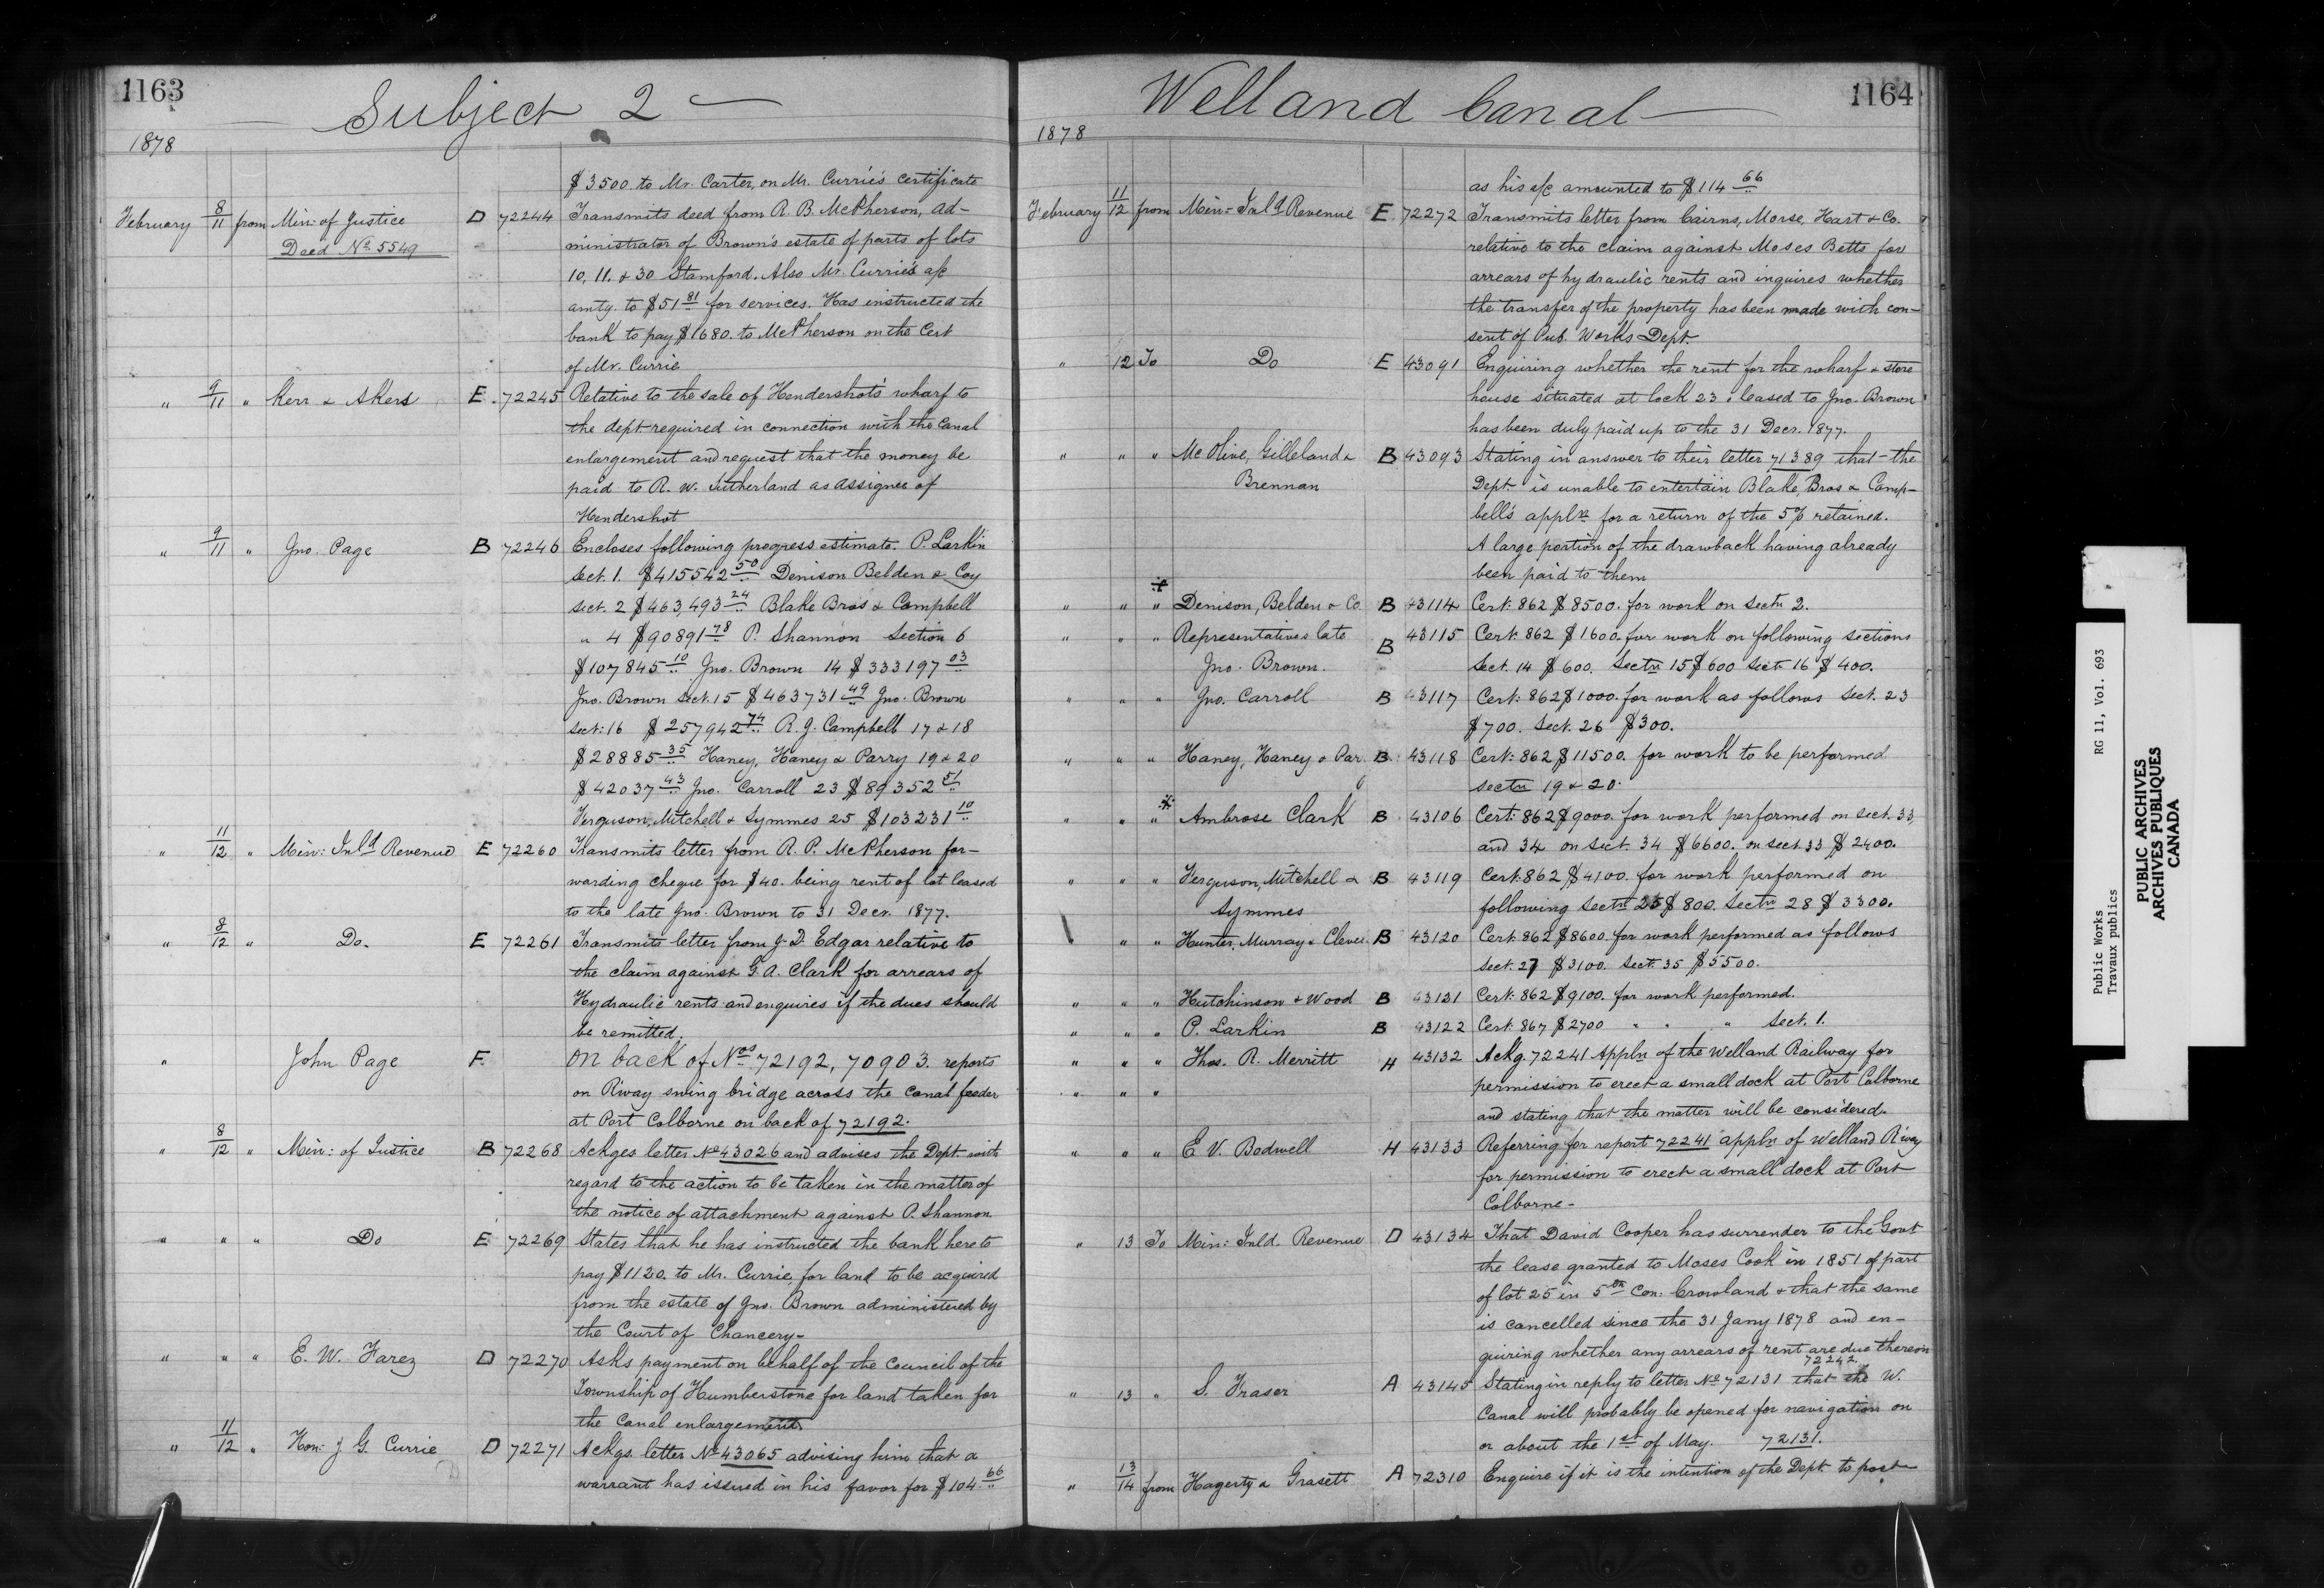 1163
Subject 2 —
1878
$3500. to Mr. Carter, on Mr. Currie's certificate
February 8/11 from Min: of Justice D 72244 Transmits deed from R. B. McPherson, ad-
Deed No. 5549 ministrator of Brown's estate of parts of lots
10, 11. & 30 Stamford. Also Mr. Currie's a/c
amtg. to $51 81 for services. Has instructed the
bank to pay $1680. to McPherson on the Cert
of Mr. Currie
" 9/11 " Kerr & Akers E. 72245 Relative to the sale of Hendershot's wharf to
the dept required in connection with the Canal
enlargement and request that the money be
paid to R. W. Sutherland as assignee of
Hendershot
" 9/11 " Jno. Page B 72246 Encloses following progress estimate. P. Larkin
Sect. 1. $415542 50 Denison Belden & Coy
Sect. 2 $463,493 24 Blake Bros & Campbell
" 4 $90891 78 P. Shannon Section 6
$107845 10 Jno. Brown 14 $333197 03
Jno. Brown Sect. 15 $463731 49 Jno. Brown
Sect: 16 $257942 74 R. J. Campbell 17 & 18
$28885 35 Haney, Haney & Parry 19 & 20
$42037 43 Jno. Carroll 23 $89352 51
Ferguson, Mitchell & Symmes 25 $103231 10
" 11/12 " Min: Inld Revenue E 72260 Transmits letter from R. P. McPherson for-
warding cheque for $40. being rent of lot leased
to the late Jno. Brown to 31 Decr. 1877.
" 8/12 " Do. E 72261 Transmits letter from J. D. Edgar relative to
the claim against G. A. Clark for arrears of
Hydraulic rents and enquires if the dues should
be remitted.
" John Page F. On back of Nos 72192, 70903. reports
on Rway swing bridge across the canal feeder
at Port Colborne on back of 72192.
" 8/12 " Min: of Justice B 72268 Ackges letter No 43026 and advises the Dept with
regard to the action to be taken in the matter of
the notice of attachment against P. Shannon.
" " " Do E 72269 States that he has instructed the bank here to
pay $1120. to Mr. Currie, for land to be acquired
from the estate of Jno. Brown administered by
the Court of Chancery-
" " " E. W. Farez D 72270 Asks payment on behalf of the Council of the
Township of Humberstone for land taken for
the Canal enlargement
" 11/12 " Hon: J G. Currie D 72271 Ackgs. letter No 43065 advising him that a
warrant has issued in his favor for $104 66
Welland Canal —
1164
1878
as his a/c amounted to $114 66
February 11/12 from Min: Inld Revenue E. 72272 Transmits letter from Cairns, Morse, Hart & Co.
relative to the claim against Moses Betts for
arrears of hydraulic rents and inquires whether
the transfer of the property has been made with con-
sent of Pub. Works Dept.
" 12 To Do E 43091 Enquiring whether the rent for the wharf & store
house situated at lock 23. leased to Jno. Brown
has been duly paid up to the 31 Decr. 1877.
" " " McOlive, Gilleland & B 43093 Stating in answer to their letter 71389 that the
Brennan Dept. is unable to entertain Blake, Bros & Camp-
bell's appln for a return of the 5% retained.
A large portion of the drawback having already
been paid to them
" " " Denison, Belden & Co. B 43114 Cert: 862 $8500. for work on Sectn 2.
" " " Representatives late B 43115 Cert: 862 $1600. for work on following sections
Jno. Brown. Sect. 14 $600. Sectn 15 $600 Sectn 16 $400.
" " " Jno. Carroll B 43117 Cert: 862 $1000. for work as follows Sect. 23
$700. Sect. 26 $300.
" " " Haney, Haney & Par. B. 43118 Cert: 862 $11500. for work to be performed
Sectn 19 & 20.
" " " Ambrose Clark B 43106 Cert: 862 $9000. for work performed on Sect. 33,
and 34 on Sect. 34 $6600. on Sect. 33 $2400.
" " " Ferguson, Mitchell & B 43119 Cert: 862 $4100. for work performed on
Symmes following Sectn 25 $800. Sectn 28 $3300.
" " Hunter, Murray & Cleve. B 43120 Cert. 862 $8600. for work performed as follows
Sect. 27 $3100. Sect: 35 $5500.
" " " Hutchinson & Wood B 43121 Cert: 862 $9100. for work performed.
" " " P. Larkin B 43122 Cert. 867 $2700 " " " Sect. 1.
" " " Thos. R. Merritt H 43132 Ackg. 72241 Appln of the Welland Railway for
" " " permission to erect a small dock at Port Colborne
and stating that the matter will be considered.
" " " E. V. Bodwell H 43133 Referring for report 72241 appln of Welland Rway
for permission to erect a small dock at Port
Colborne-
" 13 To Min: Inld. Revenue D 43134 That David Cooper has surrender to the Govt
the lease granted to Moses Cook in 1851 of part
of lot 25 in 5th Con: Crowland & that the same
is cancelled since the 31 Jany 1878 and en-
quiring whether any arrears of rent are due thereon
72242
" 13 " S. Fraser A 43145 Stating in reply to letter No 72131 that the W.
Canal will probably be opened for navigation on
or about the 1st of May. 72131.
" 13/14 from Hagerty & Grasett A 72310 Enquire if it is the intention of the Dept. to post
Public Works RG 11, Vol. 693
Travaux publics
PUBLIC ARCHIVES
ARCHIVES PUBLIQUES
CANADA